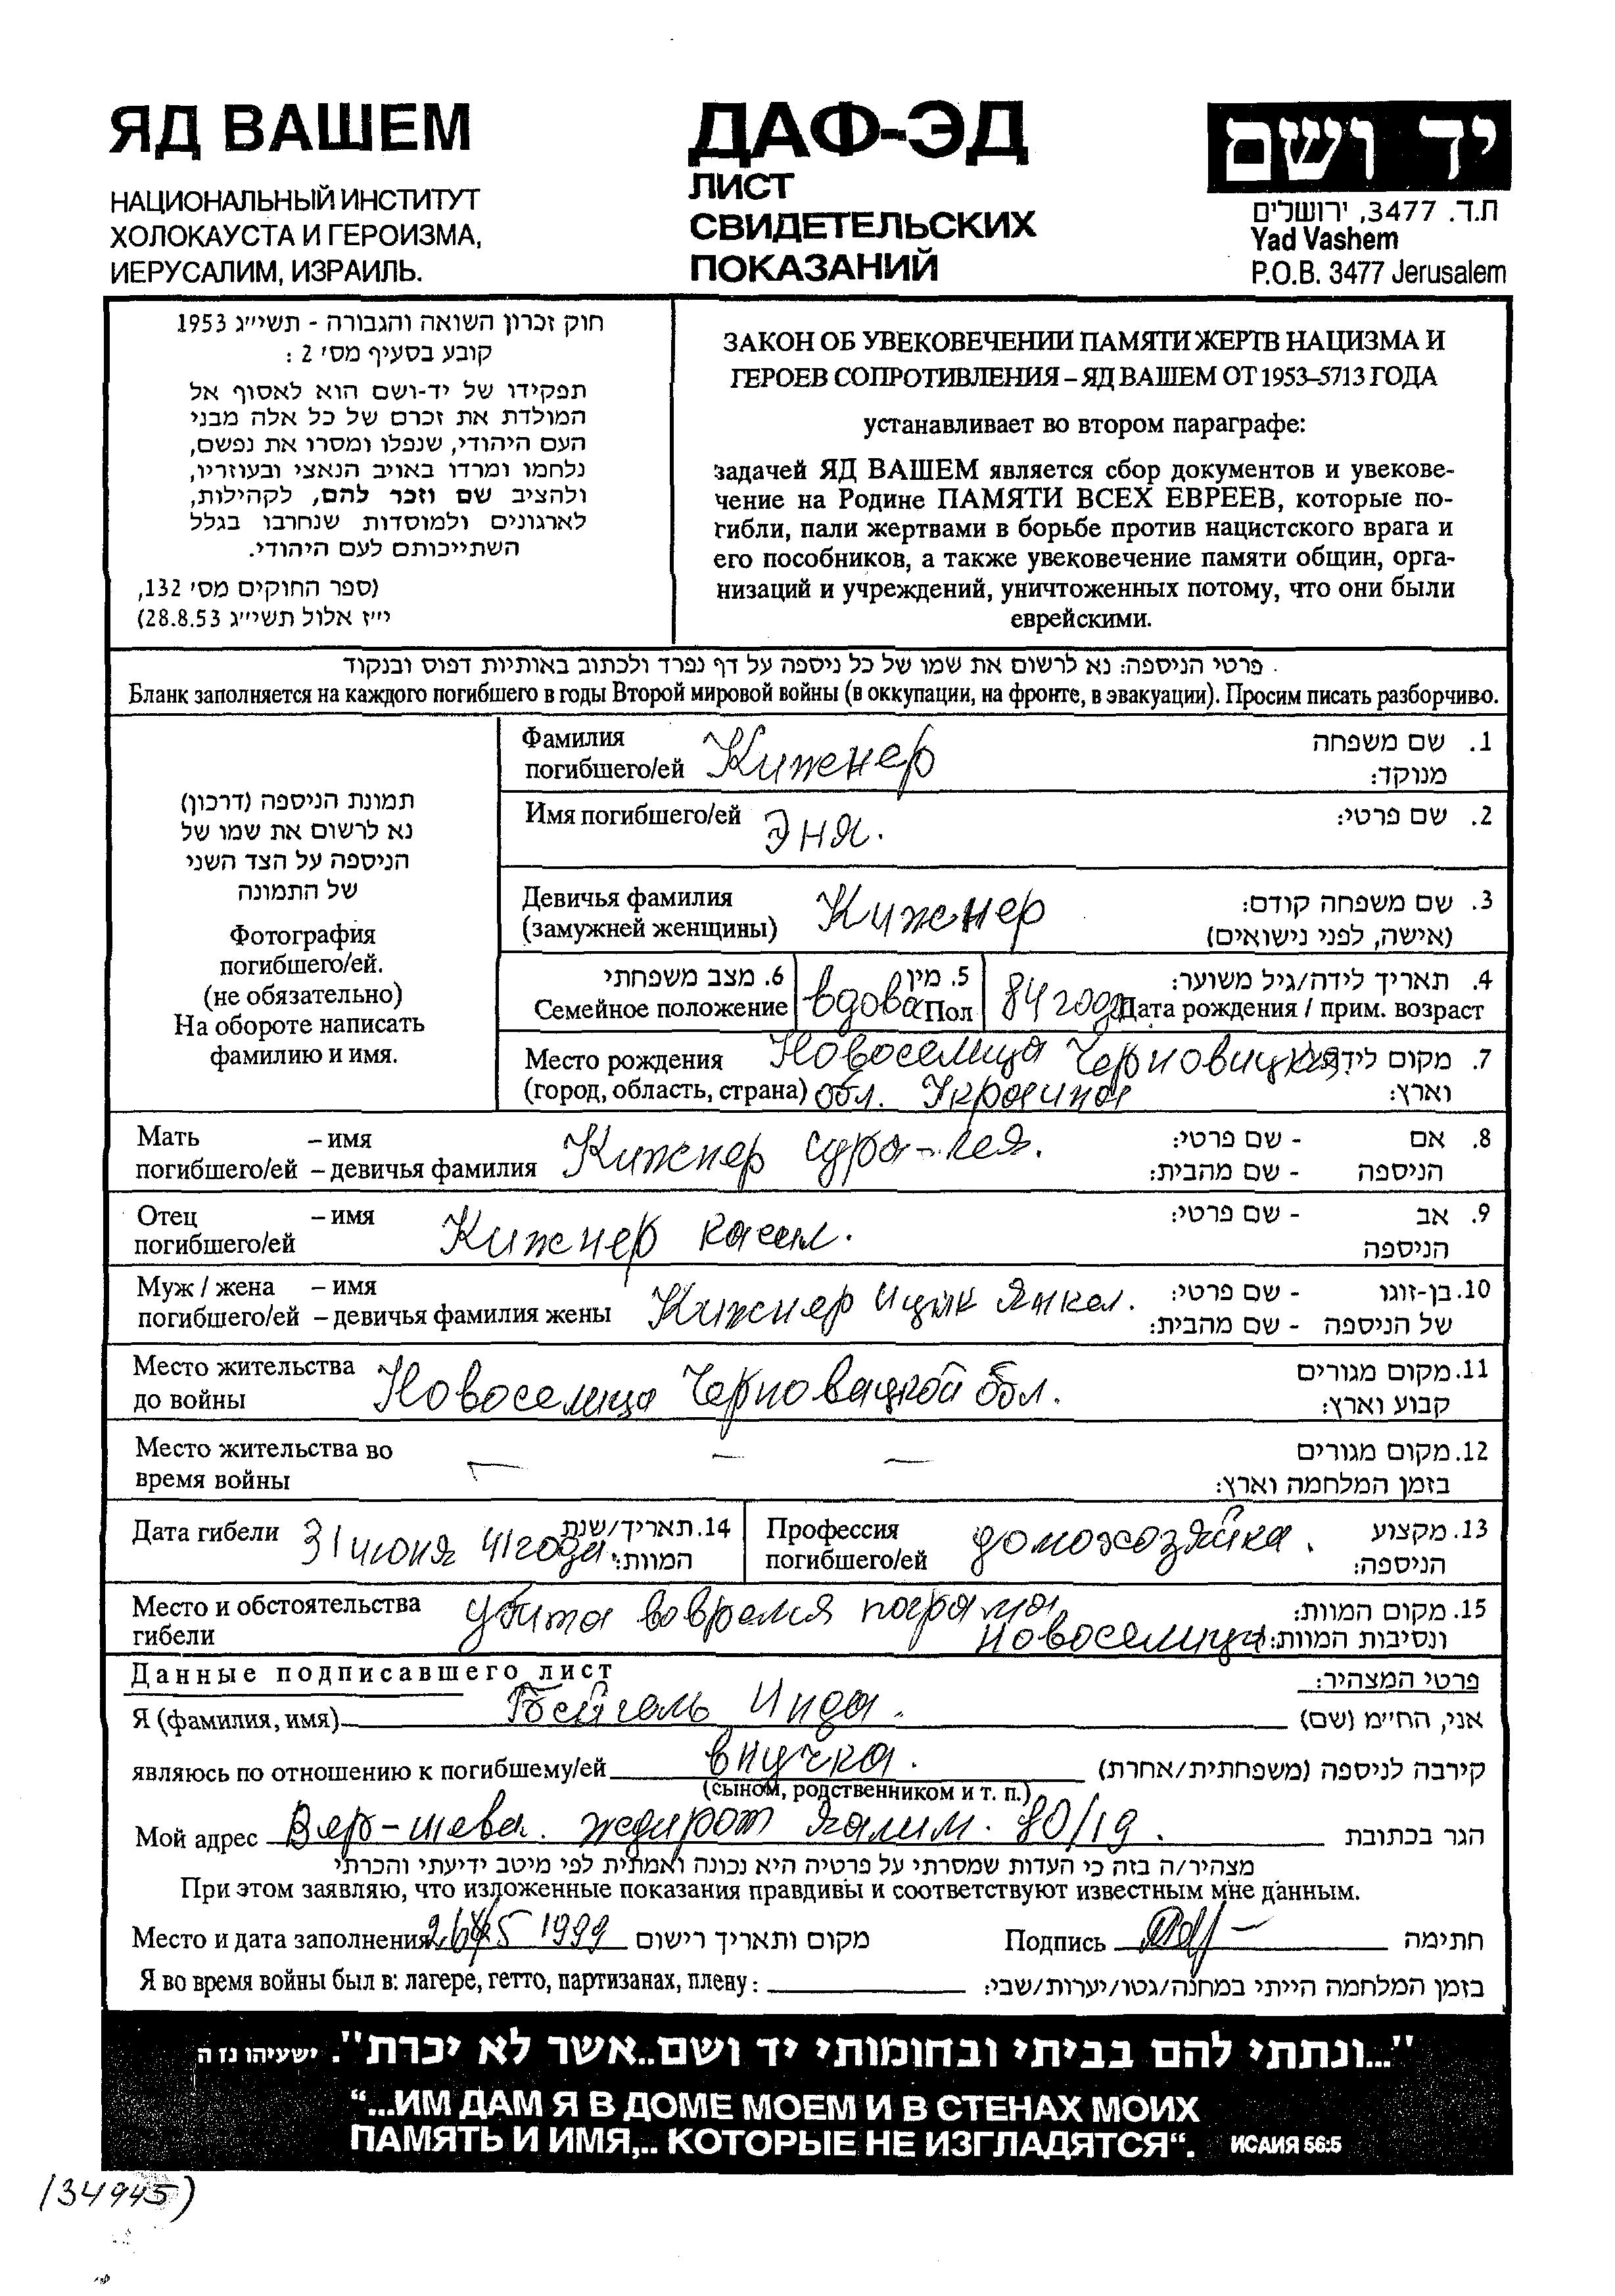 ЯД ВАШЕМ
НАЦИОНАЛЬНЫЙ ИНСТИТУТ
ХОЛОКАУСТА И ГЕРОИЗМА,
ИЕРУСАЛИМ, ИЗРАИЛЬ.
ДАФ-ЭД
ЛИСТ
СВИДЕТЕЛЬСКИХ
ПОКАЗАНИЙ
יד ושם
ת.ד. 3477, ירושלים
Yad Vashem
P.O.B. 3477 Jerusalem
חוק זכרון השואה והגבורה - תשי״ג 1953
קובע בסעיף מס׳ 2 :
תפקידו של יד-ושם הוא לאסוף אל
המולדת את זכרם של כל אלה מבני
העם היהודי, שנפלו ומסרו את נפשם,
נלחמו ומרדו באויב הנאצי ובעוזריו,
ולהציב שם וזכר להם, לקהילות,
לארגונים ולמוסדות שנחרבו בגלל
השתייכותם לעם היהודי.
(ספר החוקים מס׳ 132,
י״ז אלול תשי״ג 28.8.53)
ЗАКОН ОБ УВЕКОВЕЧЕНИИ ПАМЯТИ ЖЕРТВ НАЦИЗМА И
ГЕРОЕВ СОПРОТИВЛЕНИЯ – ЯД ВАШЕМ ОТ 1953–5713 ГОДА
устанавливает во втором параграфе:
задачей ЯД ВАШЕМ является сбор документов и увекове-
чение на Родине ПАМЯТИ ВСЕХ ЕВРЕЕВ, которые по-
гибли, пали жертвами в борьбе против нацистского врага и
его пособников, а также увековечение памяти общин, орга-
низаций и учреждений, уничтоженных потому, что они были
еврейскими.
פרטי הניספה: נא לרשום את שמו של כל ניספה על דף נפרד ולכתוב באותיות דפוס ובנקוד
Бланк заполняется на каждого погибшего в годы Второй мировой войны (в оккупации, на фронте, в эвакуации). Просим писать разборчиво.
תמונת הניספה (דרכון)
נא לרשום את שמו של
הניספה על הצד השני
של התמונה
Фотография
погибшего/ей.
(не обязательно)
На обороте написать
фамилию и имя.
Фамилия Кижнер 1. שם משפחה
погибшего/ей מנוקד:
Имя погибшего/ей Эня. 2. שם פרטי:
Девичья фамилия Кижнер 3. שם משפחה קודם:
(замужней женщины) (אישה, לפני נישואים)
6. מצב משפחתי 5. מין 4. תאריך לידה/גיל משוער:
Семейное положение вдова Пол 84 года Дата рождения / прим. возраст
Место рождения Новоселица Черновицкая 7. מקום לידה
(город, область, страна) обл. Украина וארץ:
Мать – имя Кижнер сура-лея. 8. אם - שם פרטי:
погибшего/ей – девичья фамилия הניספה - שם מהבית:
Отец – имя Кижнер 9. אב - שם פרטי:
погибшего/ей הניספה
Муж / жена – имя Кижнер Ицик Янкел. 10. בן-זוגו - שם פרטי:
погибшего/ей – девичья фамилия жены של הניספה - שם מהבית:
Место жительства Новоселица Черновицкой обл. 11. מקום מגורים
до войны קבוע וארץ:
Место жительства во — — — 12. מקום מגורים
время войны בזמן המלחמה וארץ:
Дата гибели 31 июня 41 года. 14. תאריך/שנת
המוות:
Профессия домохозяйка. 13. מקצוע
погибшего/ей הניספה:
Место и обстоятельства убита во время пагрома 15. מקום המוות:
гибели Новоселица ונסיבות המוות:
Данные подписавшего лист פרטי המצהיר:
Я (фамилия, имя) Бейгель Инда. אני, החי״מ (שם)
являюсь по отношению к погибшему/ей внучка. קירבה לניספה (משפחתית/אחרת)
(сыном, родственником и т. п.)
Мой адрес Бер-шева. ждирот Яалим. 80/19. הגר בכתובת
מצהיר/ה בזה כי העדות שמסרתי על פרטיה היא נכונה ואמתית לפי מיטב ידיעתי והכרתי
При этом заявляю, что изложенные показания правдивы и соответствуют известным мне данным.
Место и дата заполнения 1999 מקום ותאריך רישום Подпись חתימה
Я во время войны был в: лагере, гетто, партизанах, плену: בזמן המלחמה הייתי במחנה/גטו/יערות/שבי:
"...ונתתי להם בביתי ובחומותי יד ושם..אשר לא יכרת". ישעיהו נז ה
“...ИМ ДАМ Я В ДОМЕ МОЕМ И В СТЕНАХ МОИХ
ПАМЯТЬ И ИМЯ,.. КОТОРЫЕ НЕ ИЗГЛАДЯТСЯ“. ИСАИЯ 56:5
(34945)